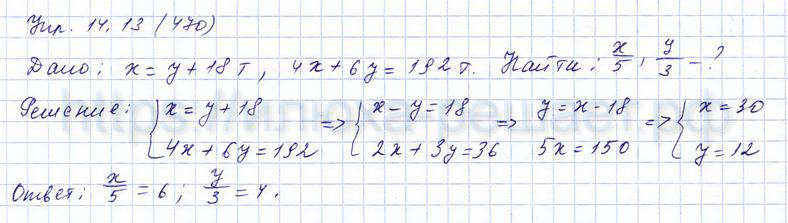 Упр. 14.13 (470)
Дано: x = y + 18 т, 4x + 6y = 192 т. Найти: x/5, y/3 - ?
Решение: { x = y + 18 4x + 6y = 192 => { x - y = 18 2x + 3y = 36 => y = x - 18 5x = 150 => { x = 30 y = 12
Ответ: x/5 = 6; y/3 = 4.